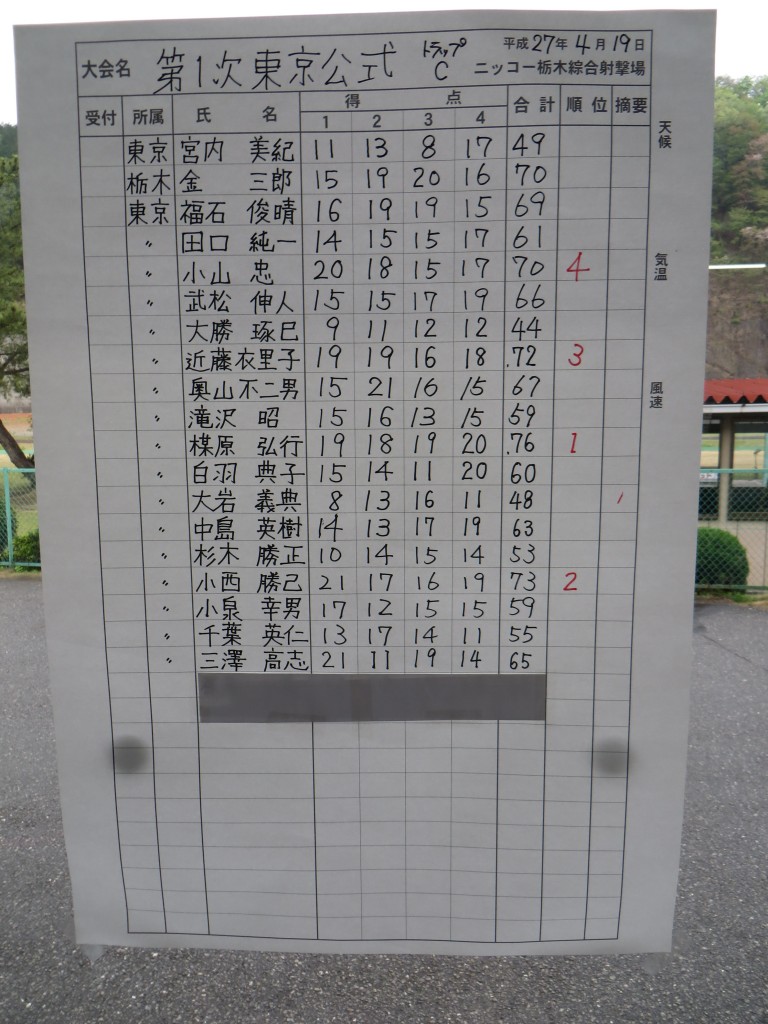 大会名 第1次東京公式 トラップ C 平成27年4月19日 ニッコー栃木綜合射撃場
受付 所属 氏名 得点 合計 順位 摘要
1 2 3 4
東京 宮内 美紀 11 13 8 17 49
栃木 金 三郎 15 19 20 16 70
東京 福石 俊晴 16 19 19 15 69
〃 田口 純一 14 15 15 17 61
〃 小山 忠 20 18 15 17 70 4
〃 武松 伸人 15 15 17 19 66
〃 大勝 琢巳 9 11 12 12 44
〃 近藤衣里子 19 19 16 18 .72 3
〃 奥山不二男 15 21 16 15 67
〃 滝沢 昭 15 16 13 15 59
〃 楳原 弘行 19 18 19 20 .76 1
〃 白羽 典子 15 14 11 20 60
〃 大岩 義典 8 13 16 11 48
〃 中島 英樹 14 13 17 19 63
〃 杉木 勝正 10 14 15 14 53
〃 小西 勝己 21 17 16 19 73 2
〃 小泉 幸男 17 12 15 15 59
〃 千葉 英仁 13 17 14 11 55
〃 三澤 高志 21 11 19 14 65
天候
気温
風速